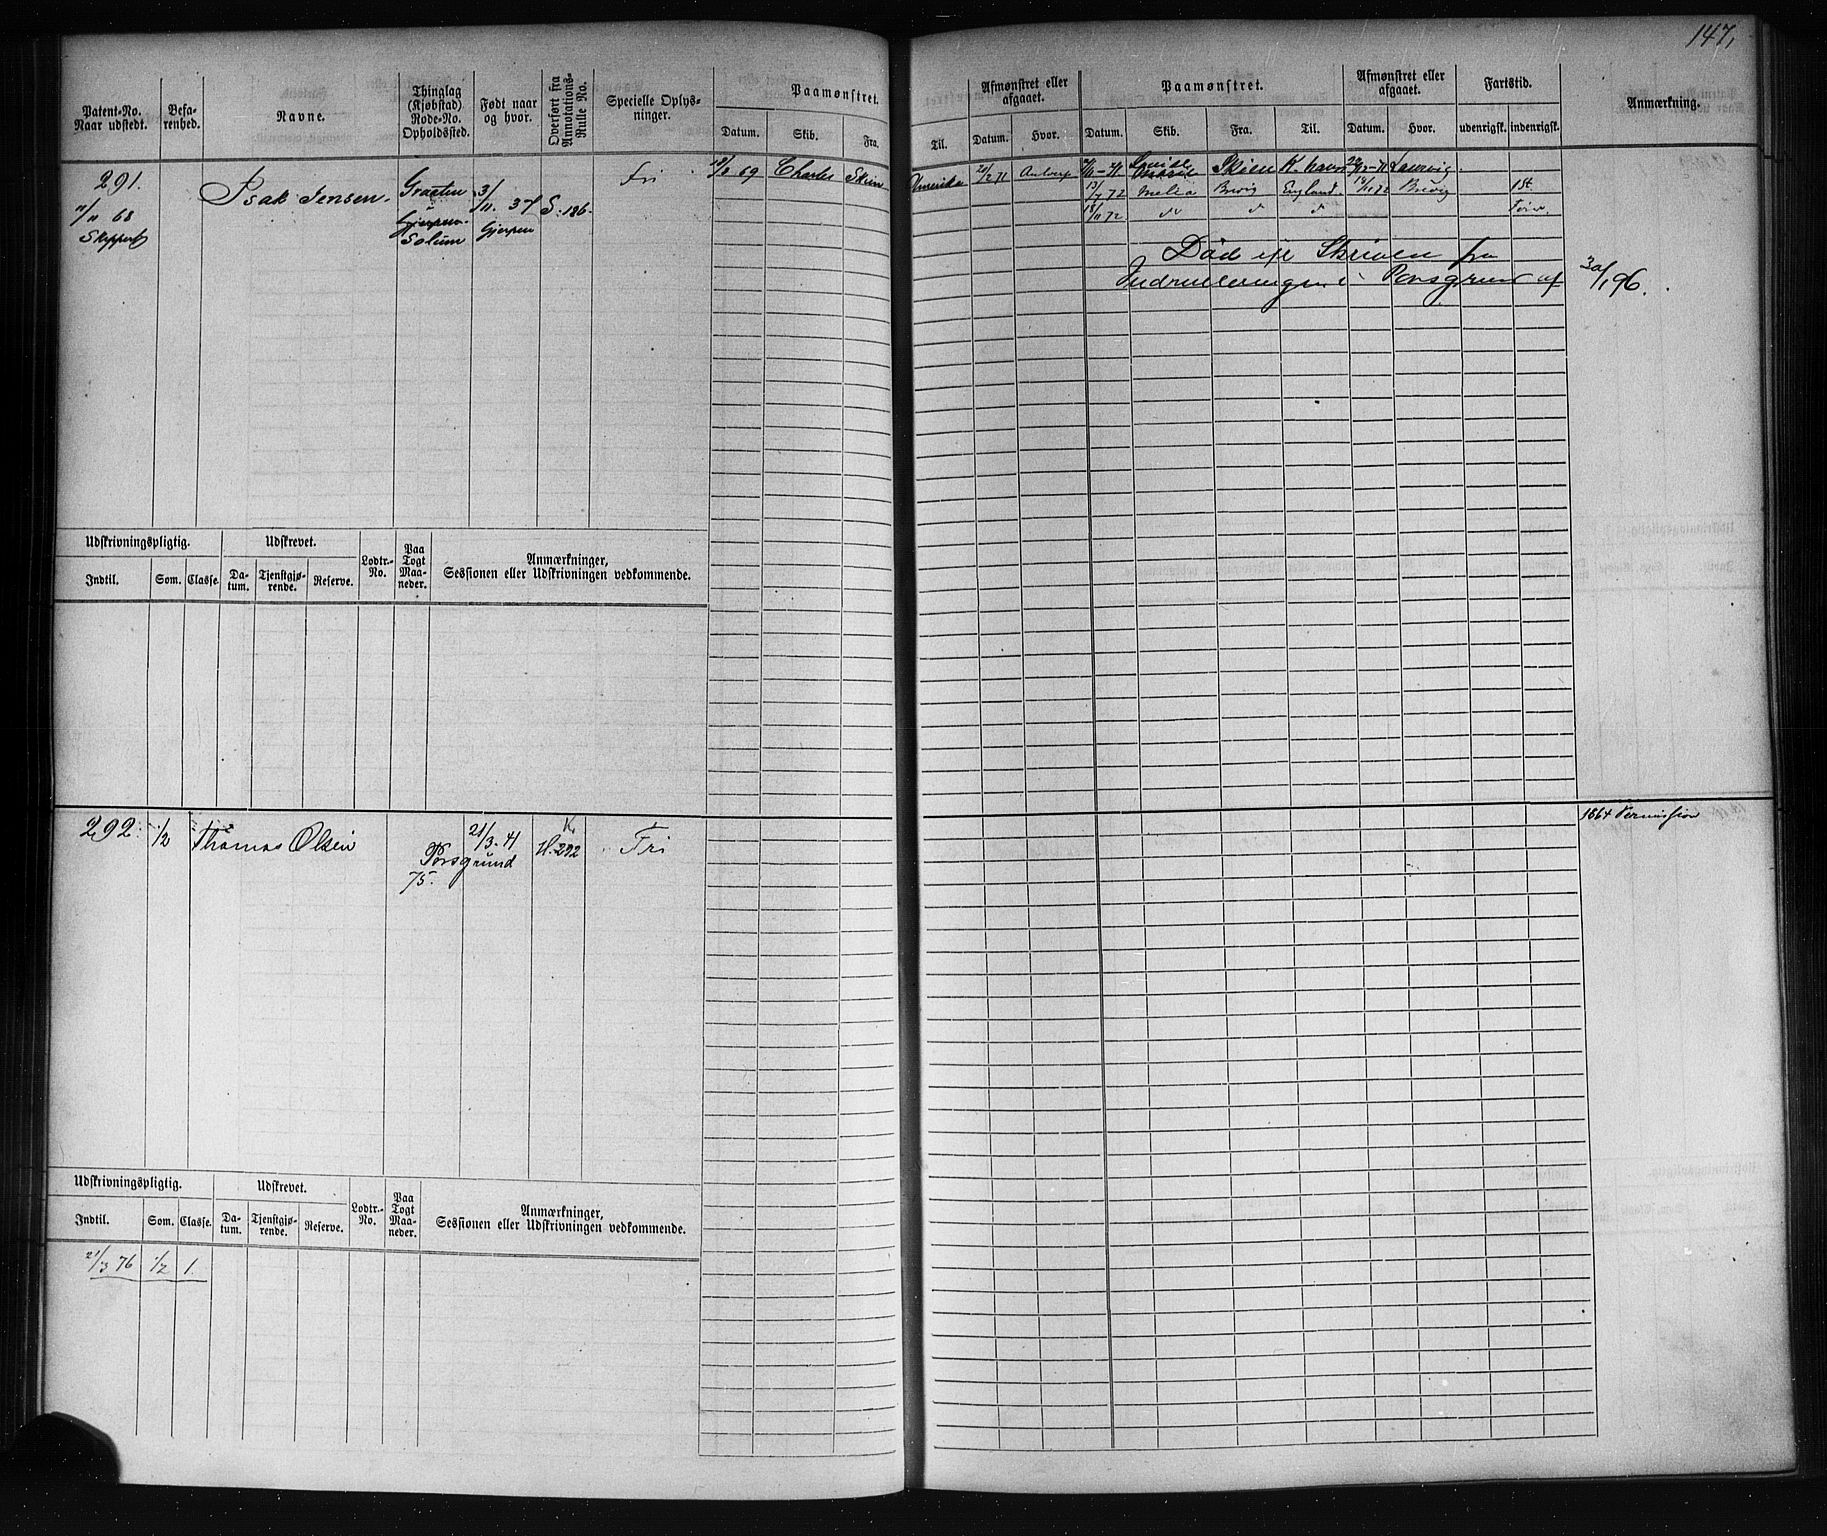 147,
Patent-No. Naar udstedt.
Befarenhed.
Navne.
Thinglag (Kjøbstad) Rode-No. Opholdssted.
Født naar og hvor.
Overført fra Annotations-Rulle No.
Specielle Oplysninger.
Paamønstret.
Datum. Skib. Fra. Til.
Afmønstret eller afgaaet.
Datum. Hvor.
Paamønstret.
Datum. Skib. Fra. Til.
Afmønstret eller afgaaet.
Datum. Hvor.
Fartstid.
udenrigsk. indenrigsk.
Anmærkning.
291.
11/11 68
Isak Jensen.
Graaten
Gjerpen
Solum
3/11. 37
Gjerpen
S. 186.
Fri
18/8 69 Charles Skien
Amerika
Skien K. havn
Laurvig.
13/7 72 Brevig England. Brevig
18/11 72
Død efl Skrivelse fra
Indrulleringen i Porsgrund af 30/1 96.
Udskrivningspligtig.
Indtil. Som. Classe.
Udskrevet.
Datum. Tjenstgjørende. Reserve.
Lodtr.-No.
Paa Togt Maaneder.
Anmærkninger,
Sessionen eller Udskrivningen vedkommende.
292. 1/2 Thomas Olsen
21/3. 41
Porsgrund
75.
H. 292
Fri
1864 Permission
Udskrivningspligtig.
Indtil. Som. Classe.
Udskrevet.
Datum. Tjenstgjørende. Reserve.
Lodtr.-No.
Paa Togt Maaneder.
Anmærkninger,
Sessionen eller Udskrivningen vedkommende.
21/3 76 1/2 1.